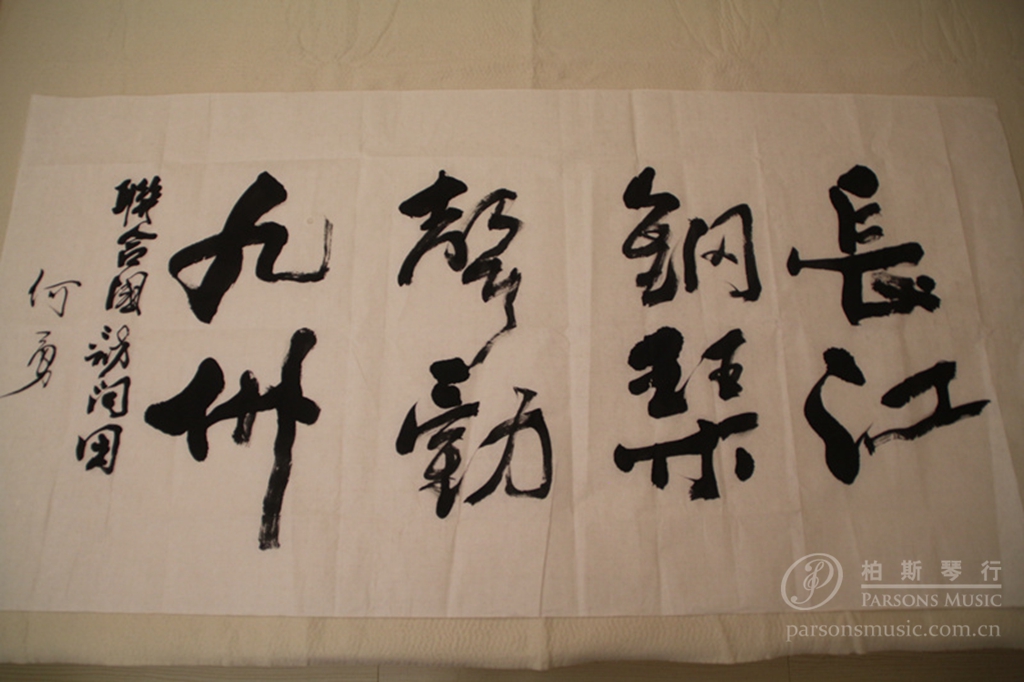 長江
鋼琴
聲動
九州
聯合國訪问团
何勇
柏斯琴行
PARSONS MUSIC
parsonsmusic.com.cn